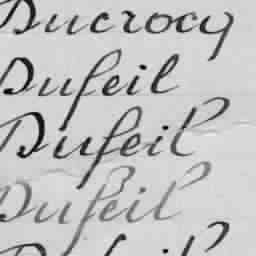 Ducrocq
Dufeil
Dufeil
Dufeil